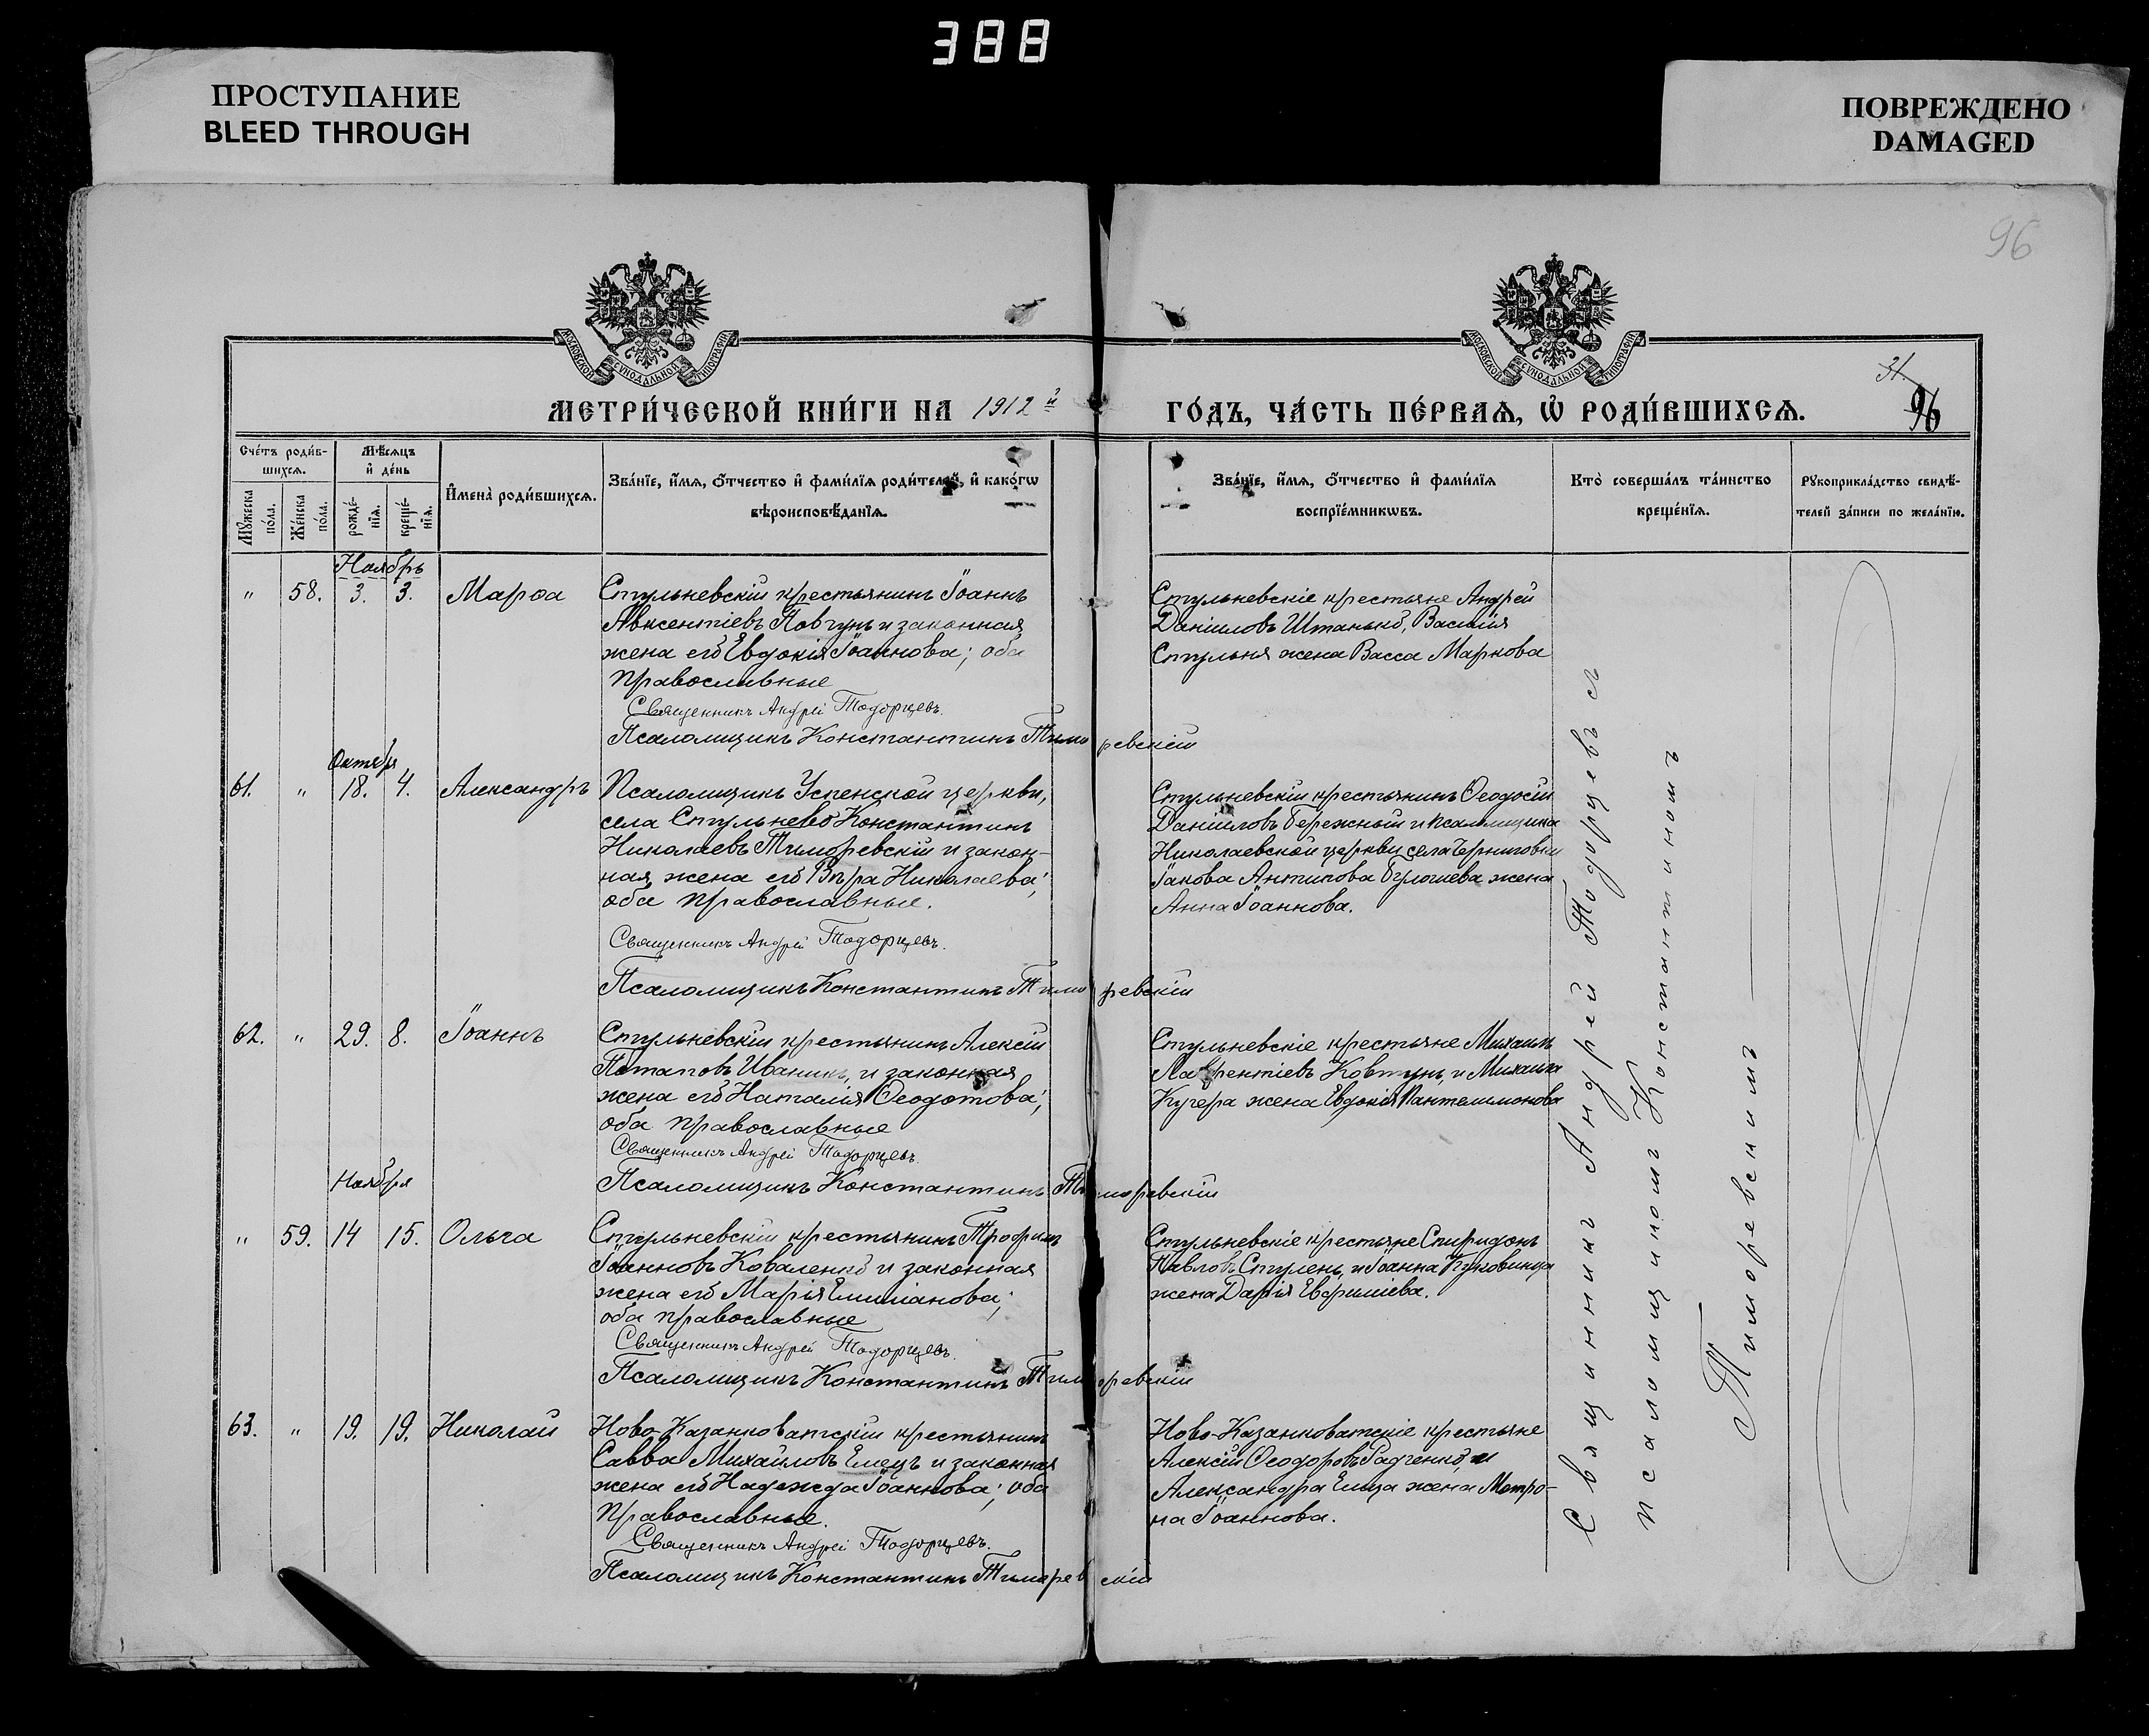 388
ПРОСТУПАНИЕ
BLEED THROUGH
ПОВРЕЖДЕНО
DAMAGED
96
МОСКОВСКОЙ СУНОДАЛЬНОЙ ТИПОГРАФІИ
МОСКОВСКОЙ СУНОДАЛЬНОЙ ТИПОГРАФІИ
31.
96
МЕТРИ́ЧЕСКОЙ КНИ́ГИ НА 1912 й
ГО́ДЪ, ЧА́СТЬ ПЕ́РВАѦ, Ѡ҆ РОДИ́ВШИХСѦ.
Сче́тъ роди́в-
шихсѧ.
Мѣ́сѧцъ
и҆ де́нь
Мꙋ́жеска
по́ла.
Же́нска
по́ла.
рожде́-
нїѧ.
креще́-
нїѧ.
И҆мена̀ роди́вшихсѧ.
Зва́нїе, и҆́мѧ, ѻ҆́тчество и҆ фами́лїѧ роди́телей, и҆ како́гѡ
вѣроисповѣ́данїѧ.
Зва́нїе, и҆́мѧ, ѻ҆́тчество и҆ фами́лїѧ
воспрїе́мникѡвъ.
Кто̀ соверша́лъ та́инство
креще́нїѧ.
Рꙋкоприкла́дство свидѣ́-
телей за́писи по жела́нїю.
Ноябрь
" 58. 3. 3. Марѳа
Стульневскій крестьянинъ Іоаннъ
Авксентіевъ Повгунъ и законная
жена его Евдокія Іоаннова; оба
православные
Священникъ Андрей Тодорцевъ.
Псаломщикъ Константинъ Тиморевскій
Стульневскіе крестьяне Андрей
Даніиловъ Штанько, Василія
Стульня жена Васса Маркова
Октября
61. " 18. 4. Александръ
Псаломщикъ Успенской церкви,
села Стульнево Константинъ
Николаевъ Тиморевскій и закон-
ная жена его Вѣра Николаева;
оба православные.
Священникъ Андрей Тодорцевъ.
Псаломщикъ Константинъ Тиморевскій
Стульневскій крестьянинъ Ѳеодосій
Даніиловъ Бережный и псаломщика
Николаевской церкви села Черниговки
Іакова Антипова жена
Анна Іоаннова.
62. " 29. 8. Іоаннъ
Стульневскій крестьянинъ Алексій
Потаповъ Иваникъ, и законная
жена его Наталія Ѳеодотова;
оба православные
Священникъ Андрей Тодорцевъ.
Псаломщикъ Константинъ Тиморевскій
Стульневскіе крестьяне Михаилъ
Лаврентіевъ Ковтунъ, и Михаила
Кучера жена Евдокія Пантелимонова
Ноября
" 59. 14 15. Ольга
Стульневскій крестьянинъ Трофимъ
Іоанновъ Коваленко и законная
жена его Марія Емиліанова;
оба православные
Священникъ Андрей Тодорцевъ.
Псаломщикъ Константинъ Тиморевскій
Стульневскіе крестьяне Спиридонъ
Павловъ Стулень, и Іоанна Куковинца
жена Дарія Евфиміева.
63. " 19. 19. Николай
Ново-Казанковатскій крестьянинъ
Савва Михайловъ Емецъ и законная
жена его Надежда Іоаннова; оба
православные.
Священникъ Андрей Тодорцевъ.
Псаломщикъ Константинъ Тиморевскій
Ново-Казанковатскіе крестьяне
Алексій Ѳеодоровъ Радченко, и
Александра Емца жена Матро-
на Іоаннова.
Священникъ Андрей Тодорцевъ съ
псаломщикомъ Константиномъ
Тиморевскимъ